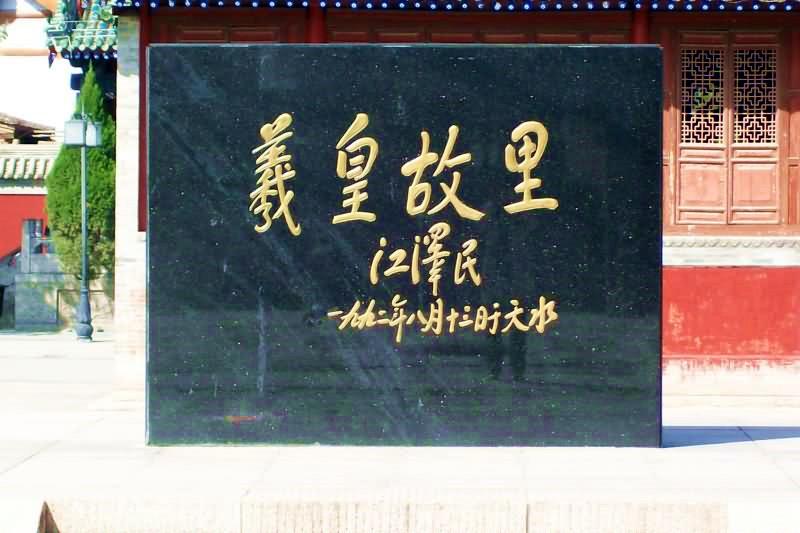 羲皇故里
江澤民
一九九二年八月十三日于天水